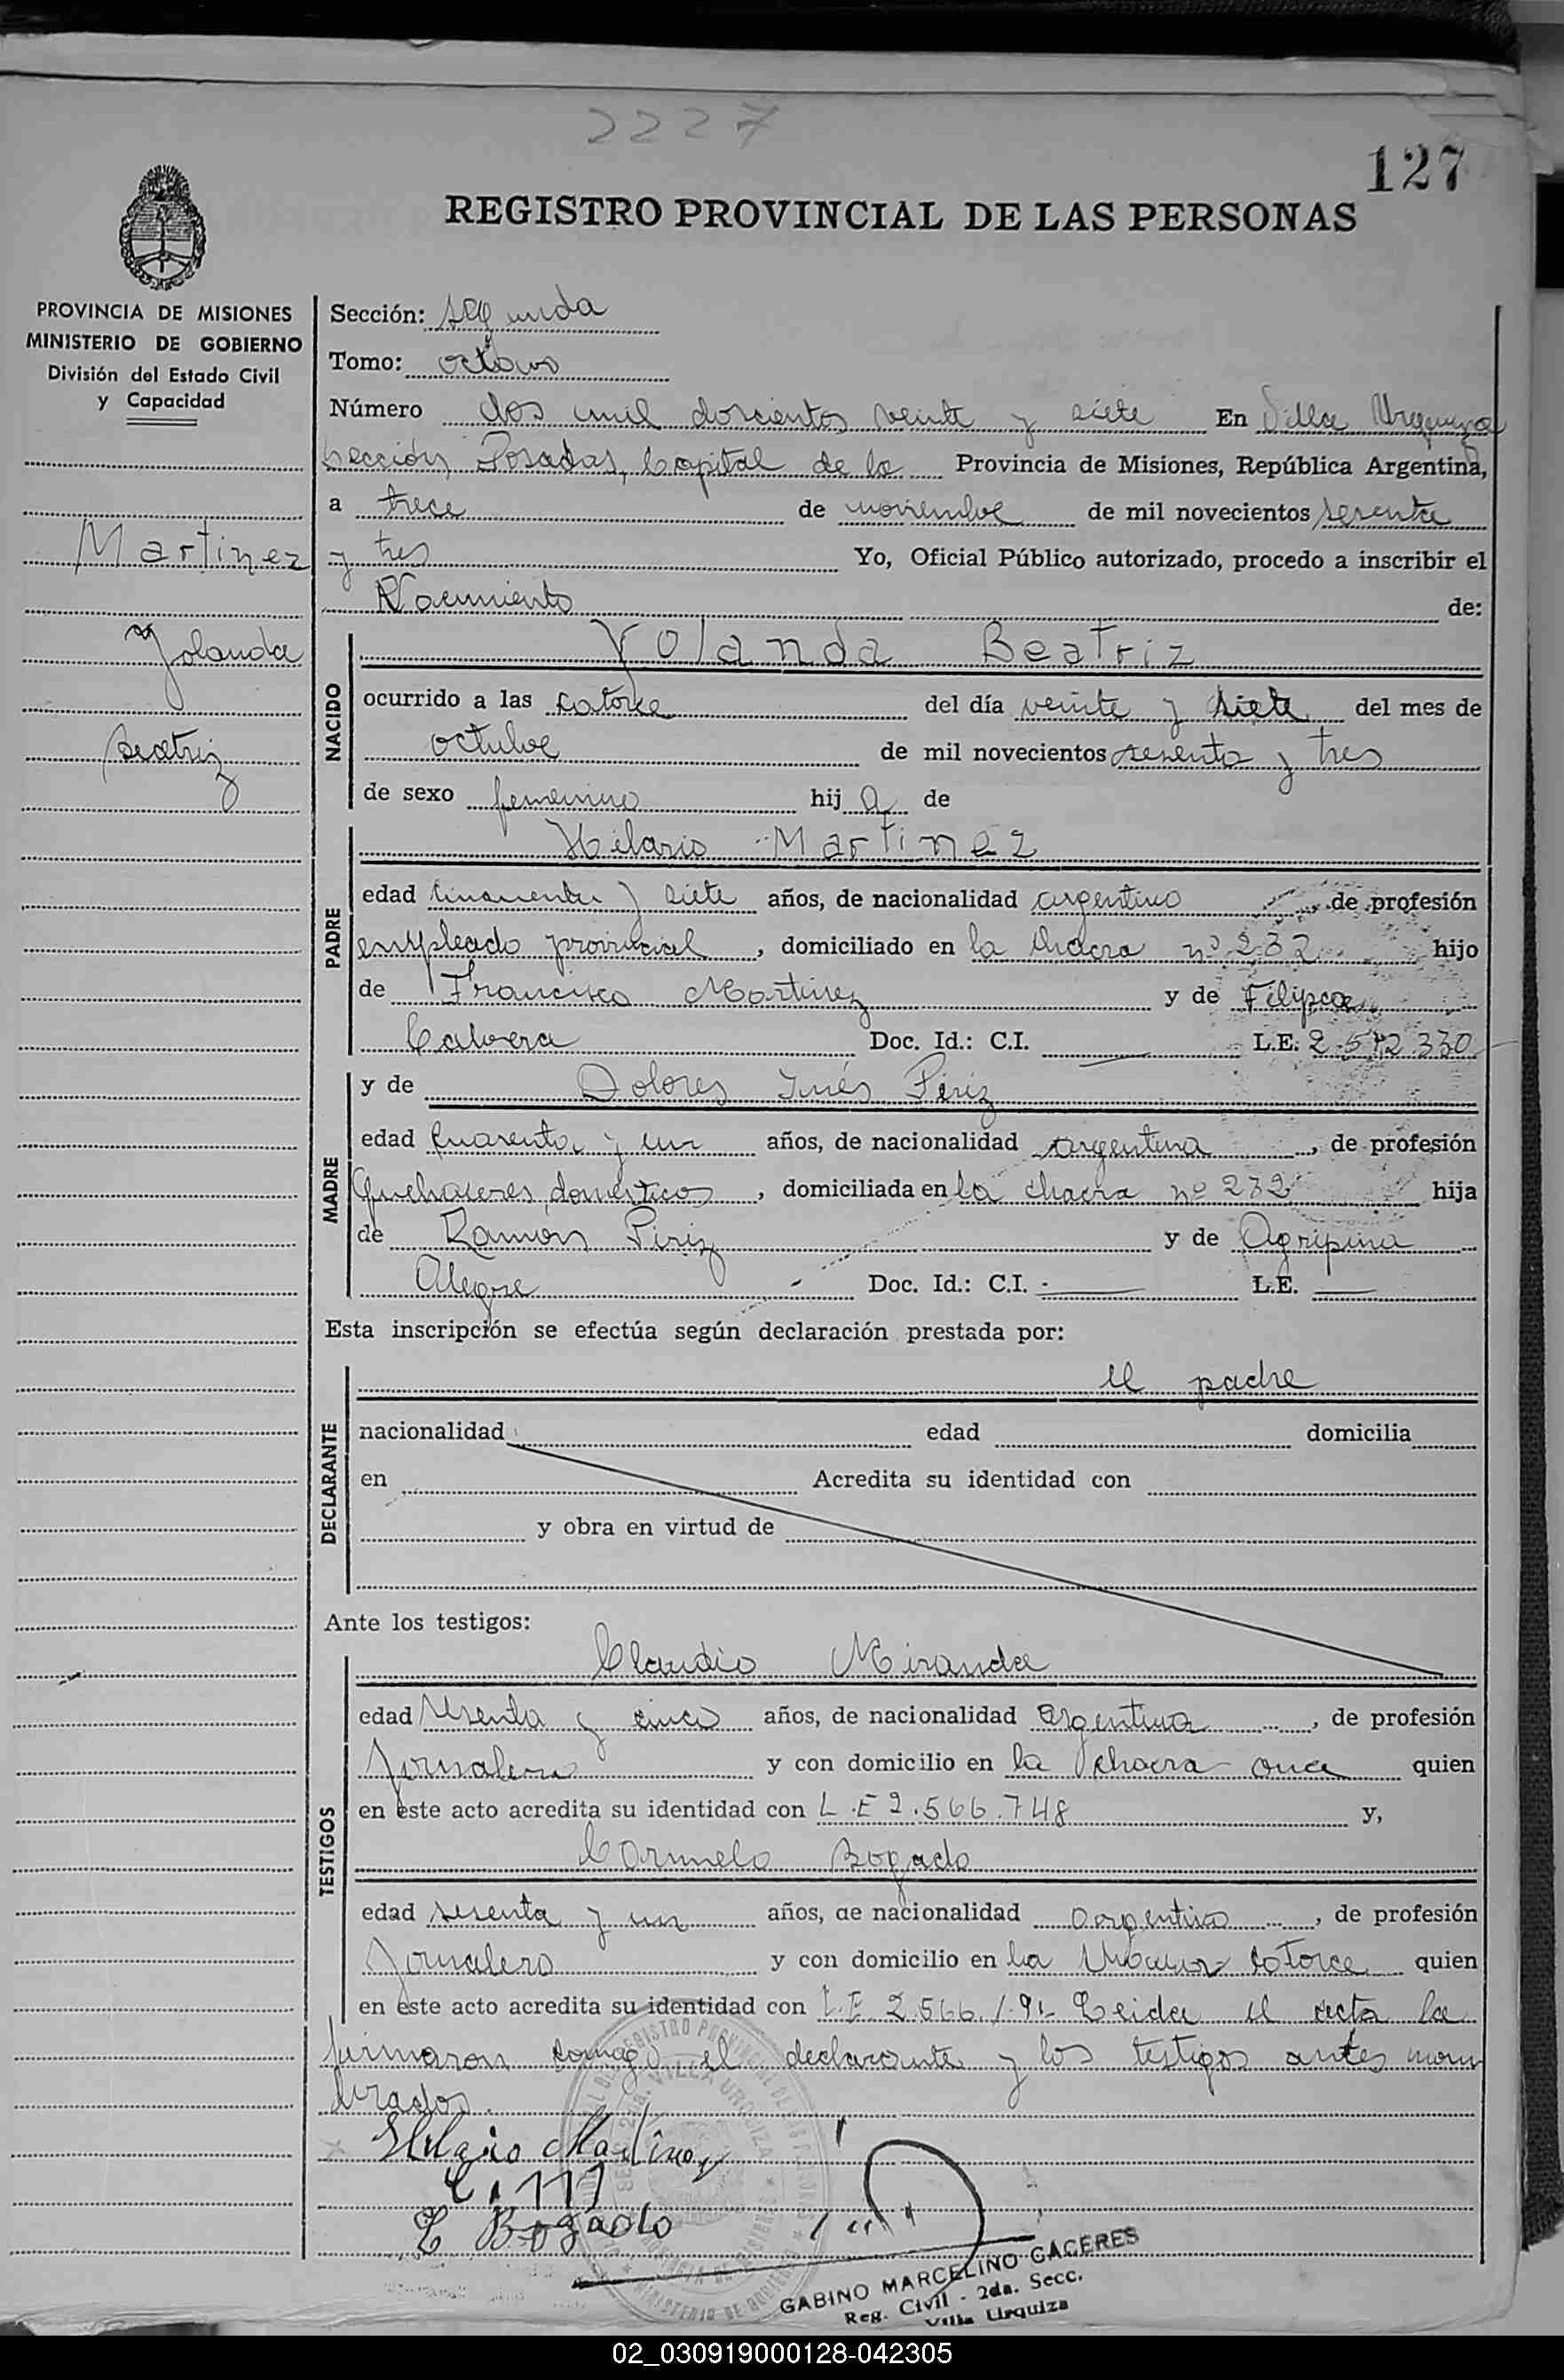 2227
127
REGISTRO PROVINCIAL DE LAS PERSONAS
PROVINCIA DE MISIONES
MINISTERIO DE GOBIERNO
División del Estado Civil
y Capacidad
Martinez
Yolanda
Beatriz
Sección: segunda
Tomo: octavo
Número dos mil doscientos veinte y siete En Villa Urquiza
Sección, Posadas, Capital de la Provincia de Misiones, República Argentina,
a trece de noviembre de mil novecientos sesenta
y tres Yo, Oficial Público autorizado, procedo a inscribir el
Nacimiento de:
NACIDO
Yolanda Beatriz
ocurrido a las catorce del día veinte y siete del mes de
octubre de mil novecientos sesenta y tres
de sexo femenino hija de
PADRE
Hilario Martinez
edad cincuenta y siete años, de nacionalidad argentino de profesión
empleado provincial, domiciliado en la chacra nº 232 hijo
de Francisco Martinez y de Felipa
Cabrera Doc. Id.: C.I. L.E. 2.572.330
MADRE
y de Dolores Inés Piriz
edad cuarenta y un años, de nacionalidad argentina, de profesión
Quehaceres domésticos, domiciliada en la chacra nº 232 hija
de Ramón Piriz y de Agripina
Alegre Doc. Id.: C.I. L.E.
Esta inscripción se efectúa según declaración prestada por:
DECLARANTE
el padre
nacionalidad edad domicilia
en Acredita su identidad con
y obra en virtud de
Ante los testigos:
TESTIGOS
Claudio Miranda
edad sesenta y cinco años, de nacionalidad argentina, de profesión
Jornalero y con domicilio en la chacra once quien
en este acto acredita su identidad con L.E 2.566.748 y,
Carmelo Bogado
edad sesenta y un años, de nacionalidad argentino, de profesión
Jornalero y con domicilio en la catorce quien
en este acto acredita su identidad con L.E. 2.566. Leida el acta la
firmaron el declarante y los testigos antes nom
brados.
Hilario Martinez
C. Bogado
GABINO MARCELINO CACERES
Reg. Civil - 2da. Secc.
Villa Urquiza
02_030919000128-042305